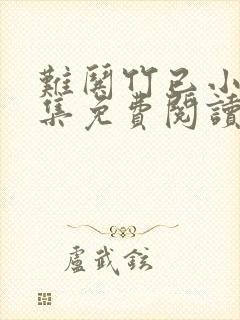 難關竹已小
集免費閱讀
盧武鉉